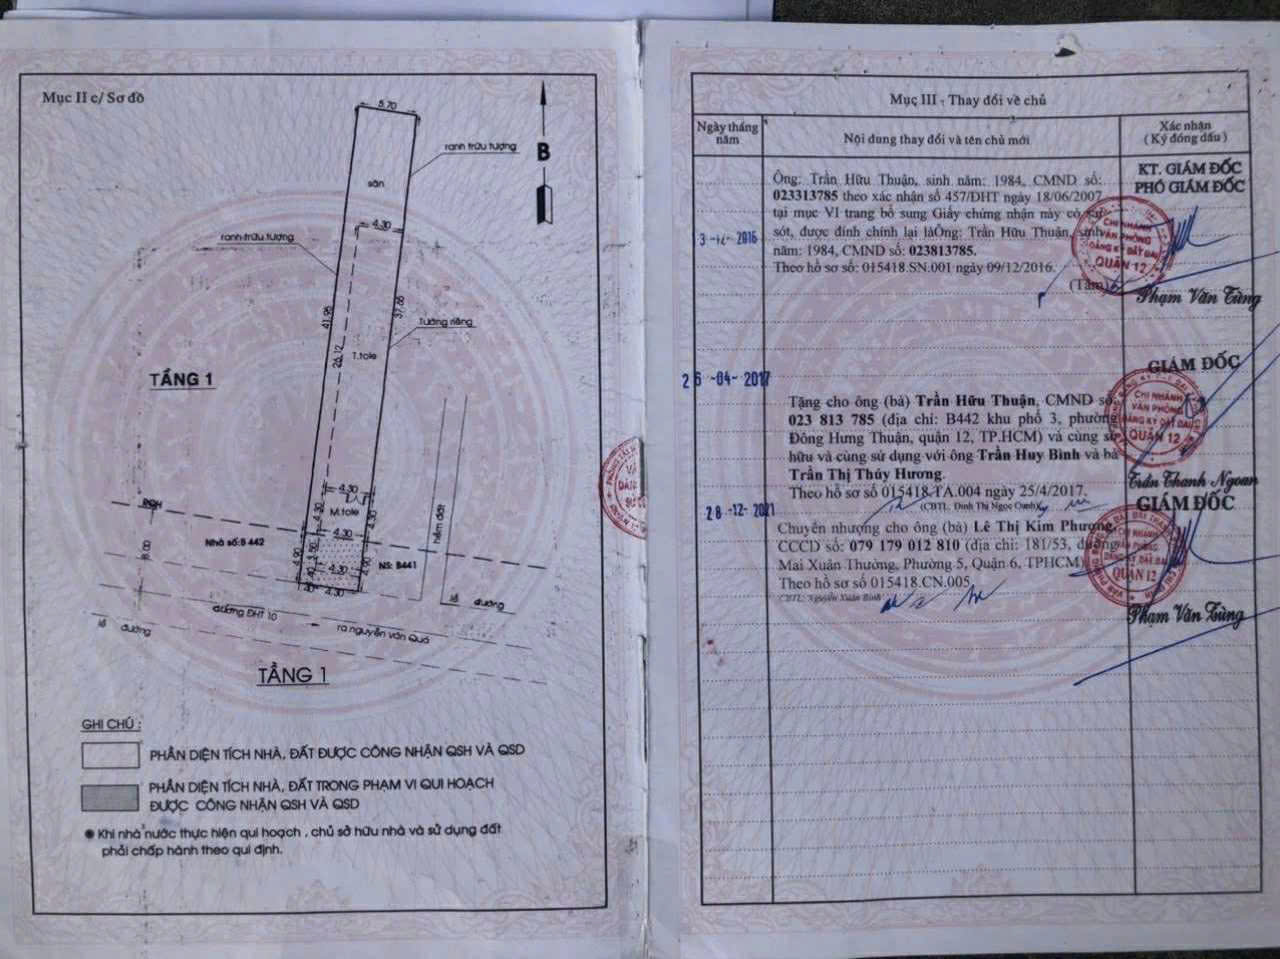 Mục II c/ Sơ đồ
5.70
ranh trừu tượng
B
sân
4.30
ranh trừu tượng
41.98
37.66
Tường riêng
26.12
T.tole
TẦNG 1
4.30
M.tole
4.30
4.30
8.00
Nhà số: B 442
4.90
3.50
NS: B441
4.30
4.90
4.30
hẻm đất
lề đường
đường ĐHT 10
ra nguyễn văn Quá
lề đường
TẦNG 1
GHI CHÚ :
PHẦN DIỆN TÍCH NHÀ, ĐẤT ĐƯỢC CÔNG NHẬN QSH VÀ QSD
PHẦN DIỆN TÍCH NHÀ, ĐẤT TRONG PHẠM VI QUI HOẠCH
ĐƯỢC CÔNG NHẬN QSH VÀ QSD
Khi nhà nước thực hiện qui hoạch , chủ sở hữu nhà và sử dụng đất
phải chấp hành theo qui định.
Mục III - Thay đổi về chủ
Ngày tháng
năm
Nội dung thay đổi và tên chủ mới
Xác nhận
( Ký đóng dấu )
Ông: Trần Hữu Thuận, sinh năm: 1984, CMND số:
023313785 theo xác nhận số 457/ĐHT ngày 18/06/2007
tại mục VI trang bổ sung Giấy chứng nhận này có sai
sót, được đính chính lại làÔng: Trần Hữu Thuận, sinh
năm: 1984, CMND số: 023813785.
Theo hồ sơ số: 015418.SN.001 ngày 09/12/2016.
(Tâm)
3 -12- 2016
KT. GIÁM ĐỐC
PHÓ GIÁM ĐỐC
CHI NHÁNH
VĂN PHÒNG
ĐĂNG KÝ ĐẤT ĐAI
QUẬN 12
Phạm Văn Tùng
26 -04- 2017
Tặng cho ông (bà) Trần Hữu Thuận, CMND số:
023 813 785 (địa chỉ: B442 khu phố 3, phường
Đông Hưng Thuận, quận 12, TP.HCM) và cùng sở
hữu và cùng sử dụng với ông Trần Huy Bình và bà
Trần Thị Thúy Hương.
Theo hồ sơ số 015418.TA.004 ngày 25/4/2017.
(CBTL: Đinh Thị Ngọc Oanh)
GIÁM ĐỐC
CHI NHÁNH
VĂN PHÒNG
ĐĂNG KÝ ĐẤT ĐAI
QUẬN 12
Trần Thanh Ngoan
28 -12- 2021
Chuyển nhượng cho ông (bà) Lê Thị Kim Phượng,
CCCD số: 079 179 012 810 (địa chỉ: 181/53, đường
Mai Xuân Thưởng, Phường 5, Quận 6, TPHCM)
Theo hồ sơ số 015418.CN.005
CBTL: Nguyễn Xuân Bình
GIÁM ĐỐC
CHI NHÁNH
QUẬN 12
Phạm Văn Tùng